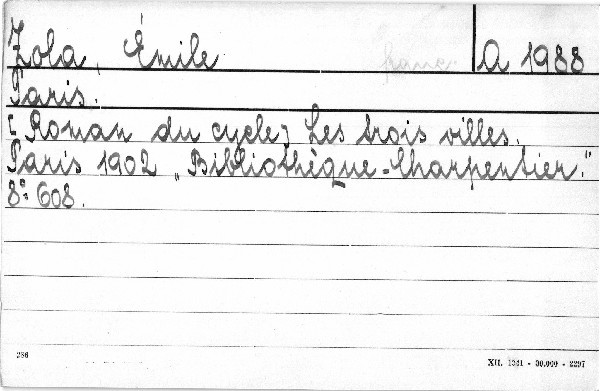 Zola, Émile franc. A 1988
Paris.
[Roman du cycle] Les trois villes.
Paris 1902 „Bibliothèque-Charpentier."
8° 608.
286 XII. 1341 - 30.000 - 2297